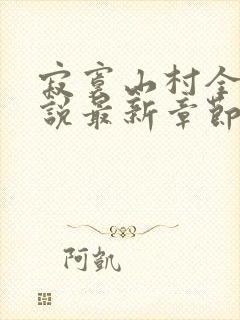 寂寞山村全
說最新章節
阿凱